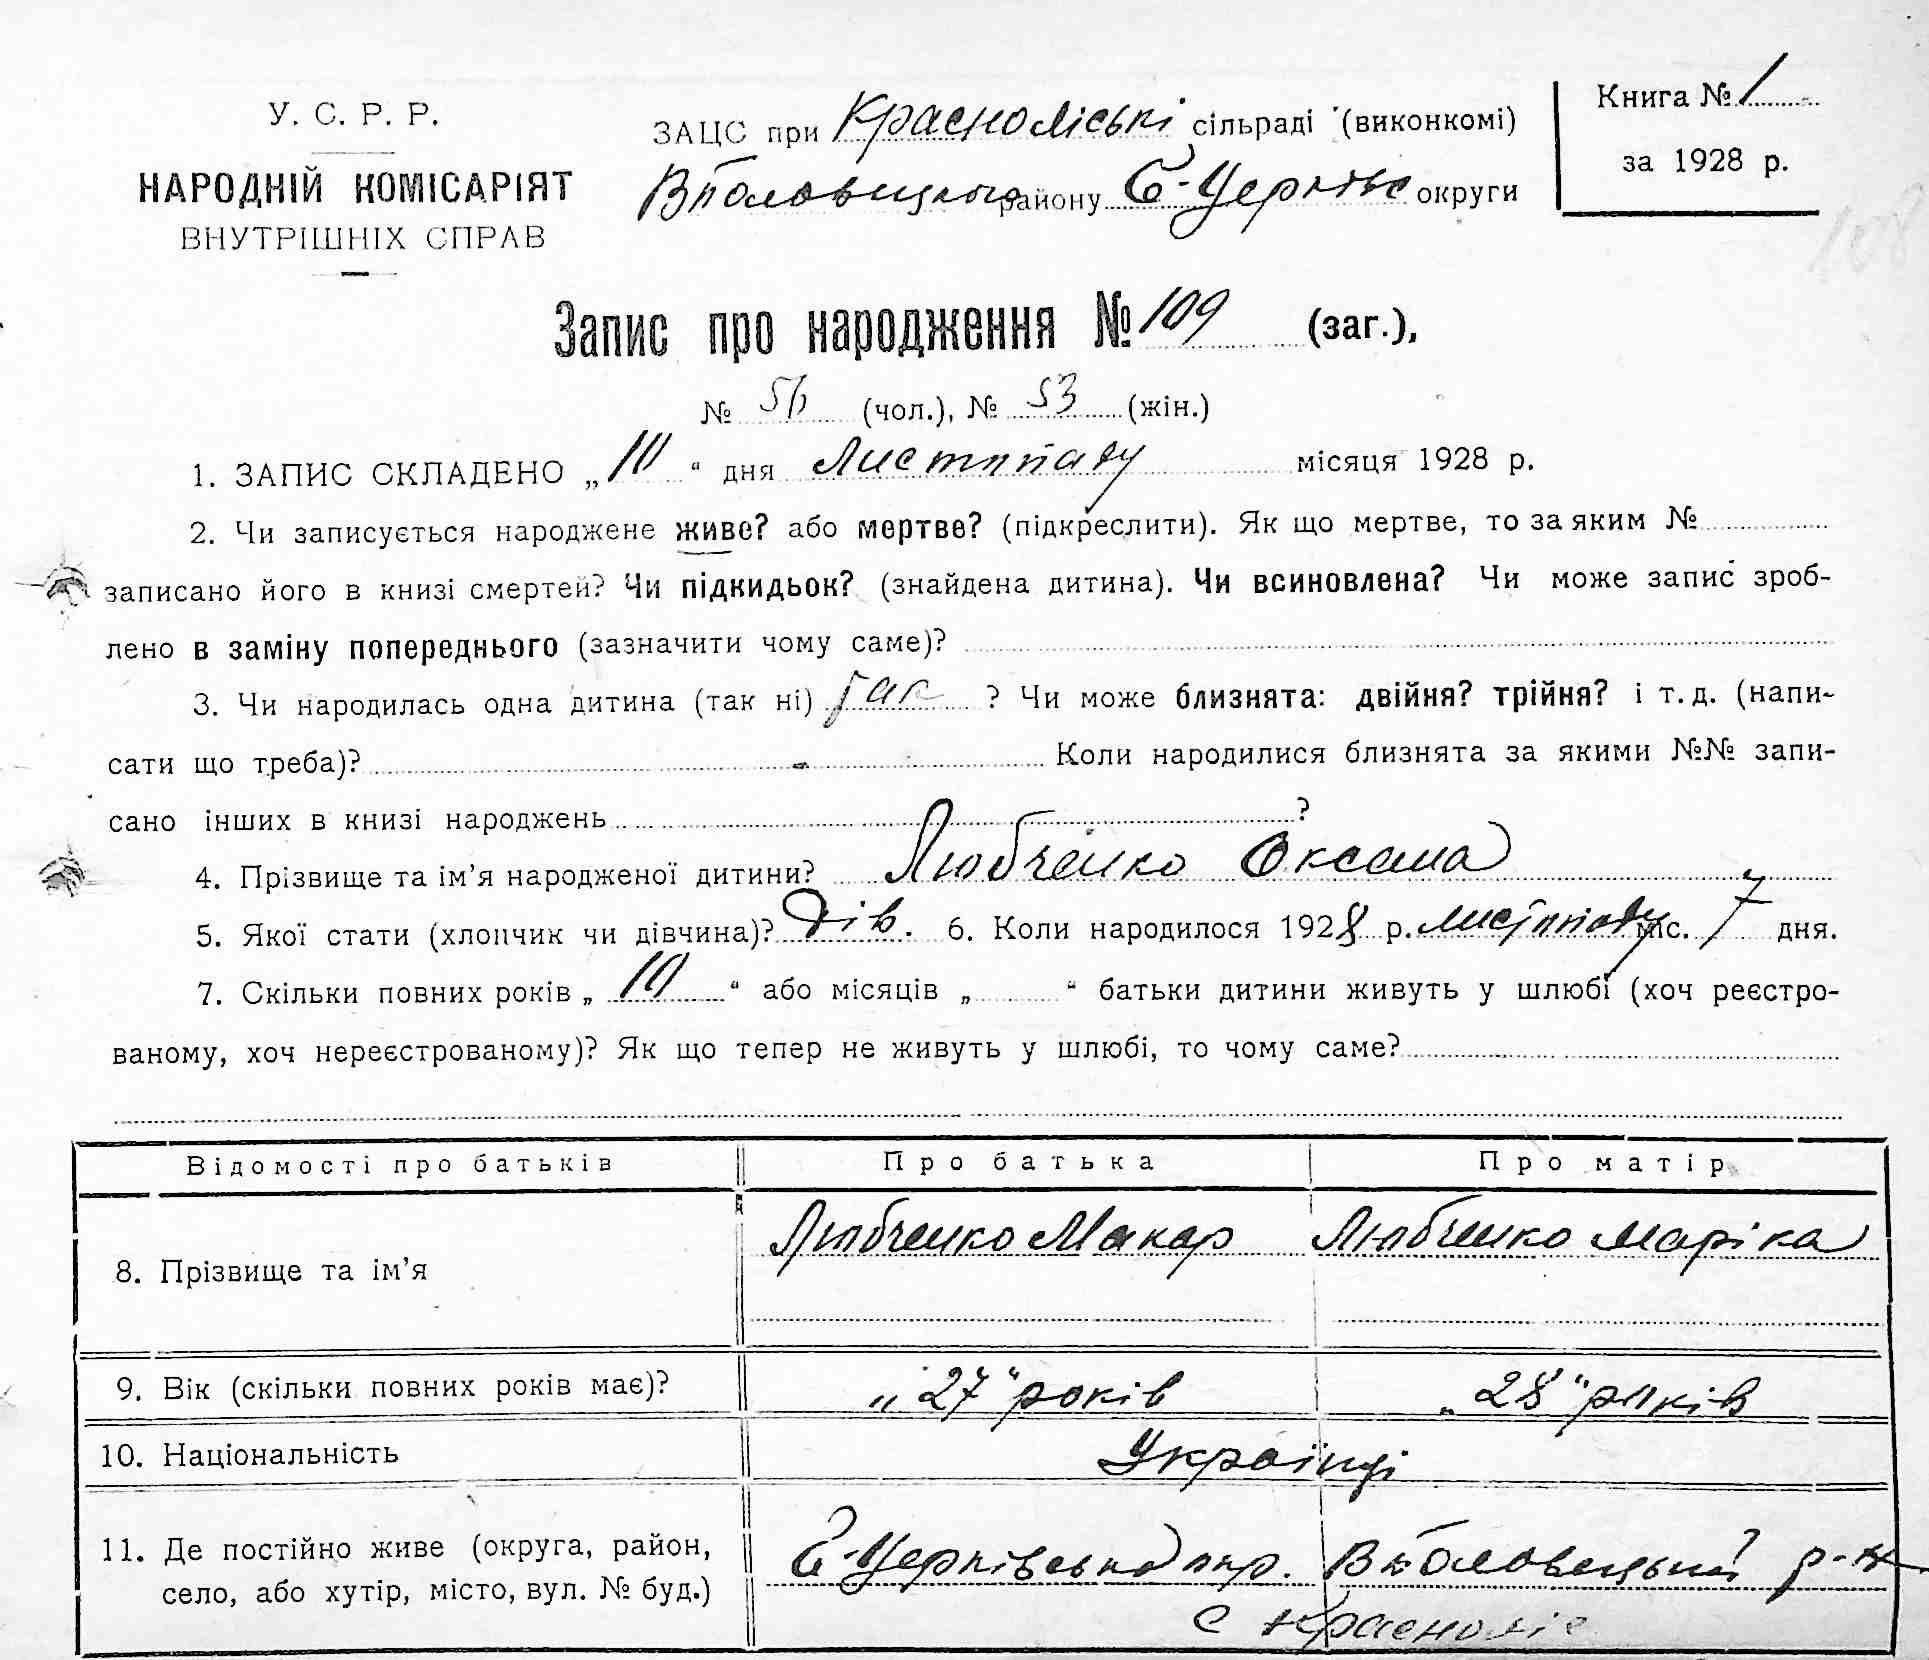 У. С. Р. Р.
НАРОДНІЙ КОМІСАРІЯТ
ВНУТРІШНІХ СПРАВ
ЗАЦС при Красноліські сільраді (виконкомі)
Вполовицького району Б-Церківс округи
Книга № 1
за 1928 р.
108
Запис про народження № 109 (заг.),
№ 56 (чол.), № 53 (жін.)
1. ЗАПИС СКЛАДЕНО „10“ дня Листопаду місяця 1928 р.
2. Чи записується народжене живе? або мертве? (підкреслити). Як що мертве, то за яким №
записано його в книзі смертей? Чи підкидьок? (знайдена дитина). Чи всиновлена? Чи може запис зроб-
лено в заміну попереднього (зазначити чому саме)?
3. Чи народилась одна дитина (так ні) так ? Чи може близнята: двійня? трійня? і т. д. (напи-
сати що треба)? - Коли народилися близнята за якими №№ запи-
сано інших в книзі народжень ?
4. Прізвище та ім’я народженої дитини? Любченко Оксана
5. Якої стати (хлопчик чи дівчина)? Дів. 6. Коли народилося 1928 р. листопаду міс. 7 дня.
7. Скільки повних років „10“ або місяців „ “ батьки дитини живуть у шлюбі (хоч реєстро-
ваному, хоч нереєстрованому)? Як що тепер не живуть у шлюбі, то чому саме?
Відомості про батьків Про батька Про матір
8. Прізвище та ім’я Любченко Макар Любченко Маріка
9. Вік (скільки повних років має)? „27“ років „28“ років
10. Національність Українці
11. Де постійно живе (округа, район, Б-Церківська окр. Вполовецький р-н
село, або хутір, місто, вул. № буд.) с Красноліс